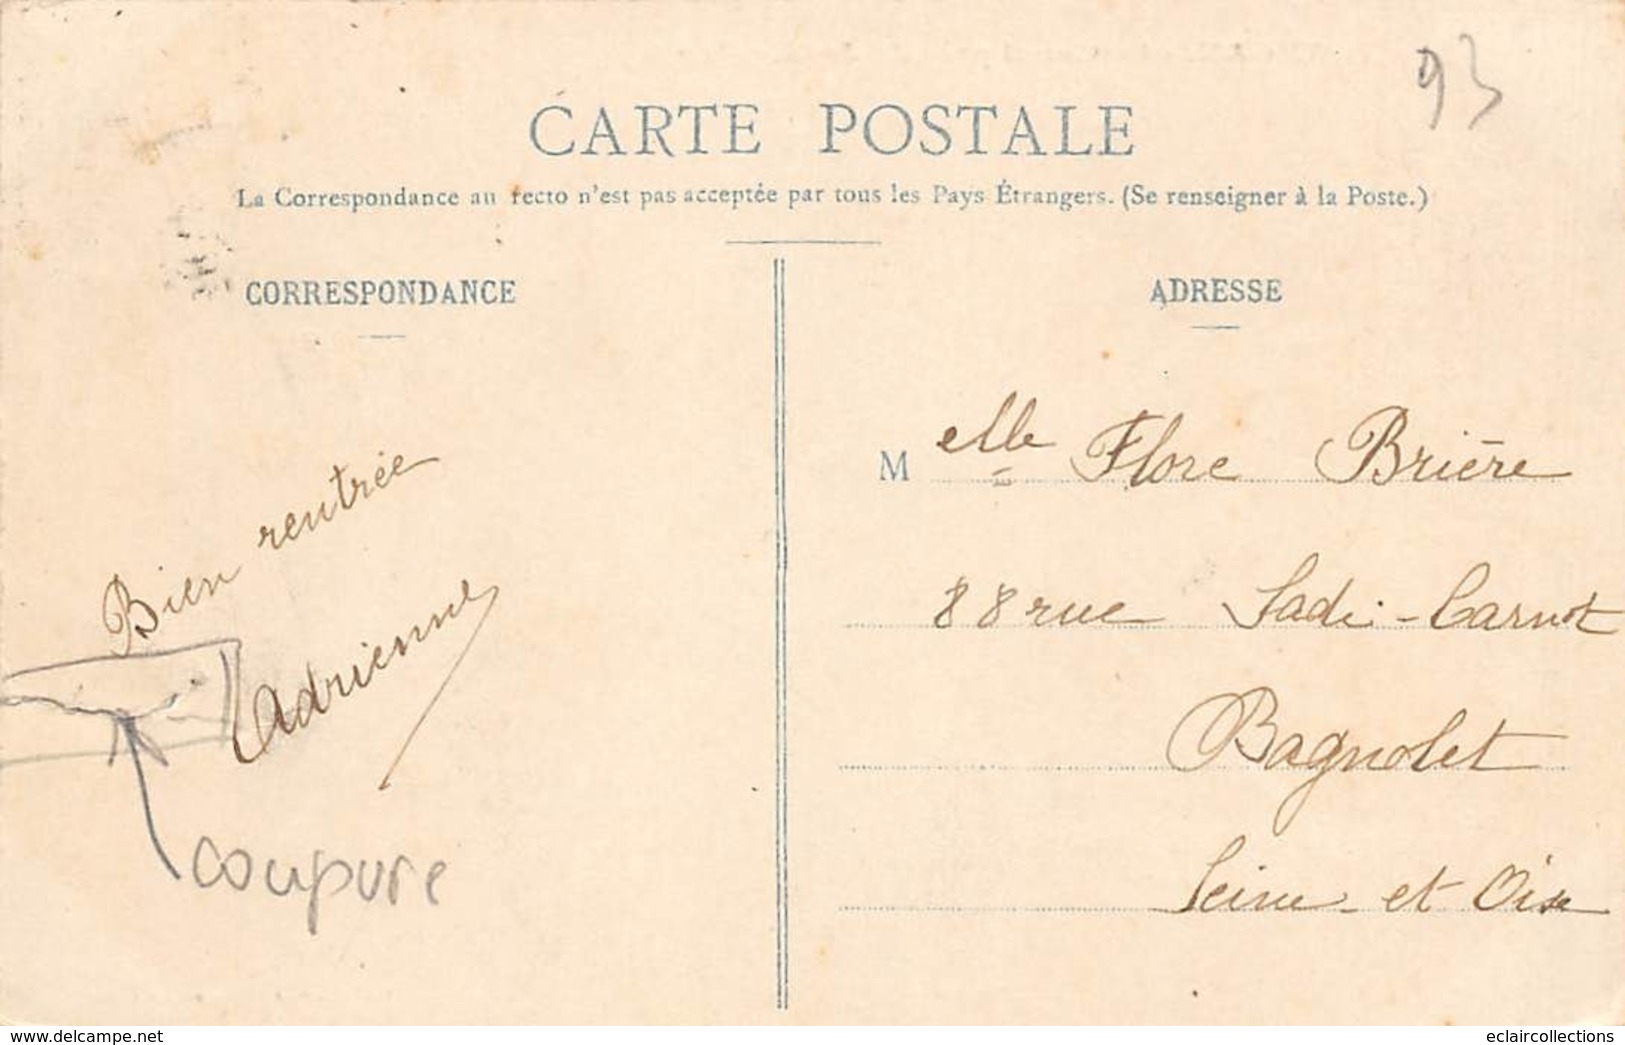 93
CARTE POSTALE
La Correspondance au recto n'est pas acceptée par tous les Pays Étrangers. (Se renseigner à la Poste.)
CORRESPONDANCE
Bien rentrée
Adrienne
coupure
ADRESSE
Melle Flore Brière
88 rue Sadi-Carnot
Bagnolet
Seine et Oise
delcampe.net
eclaircollections